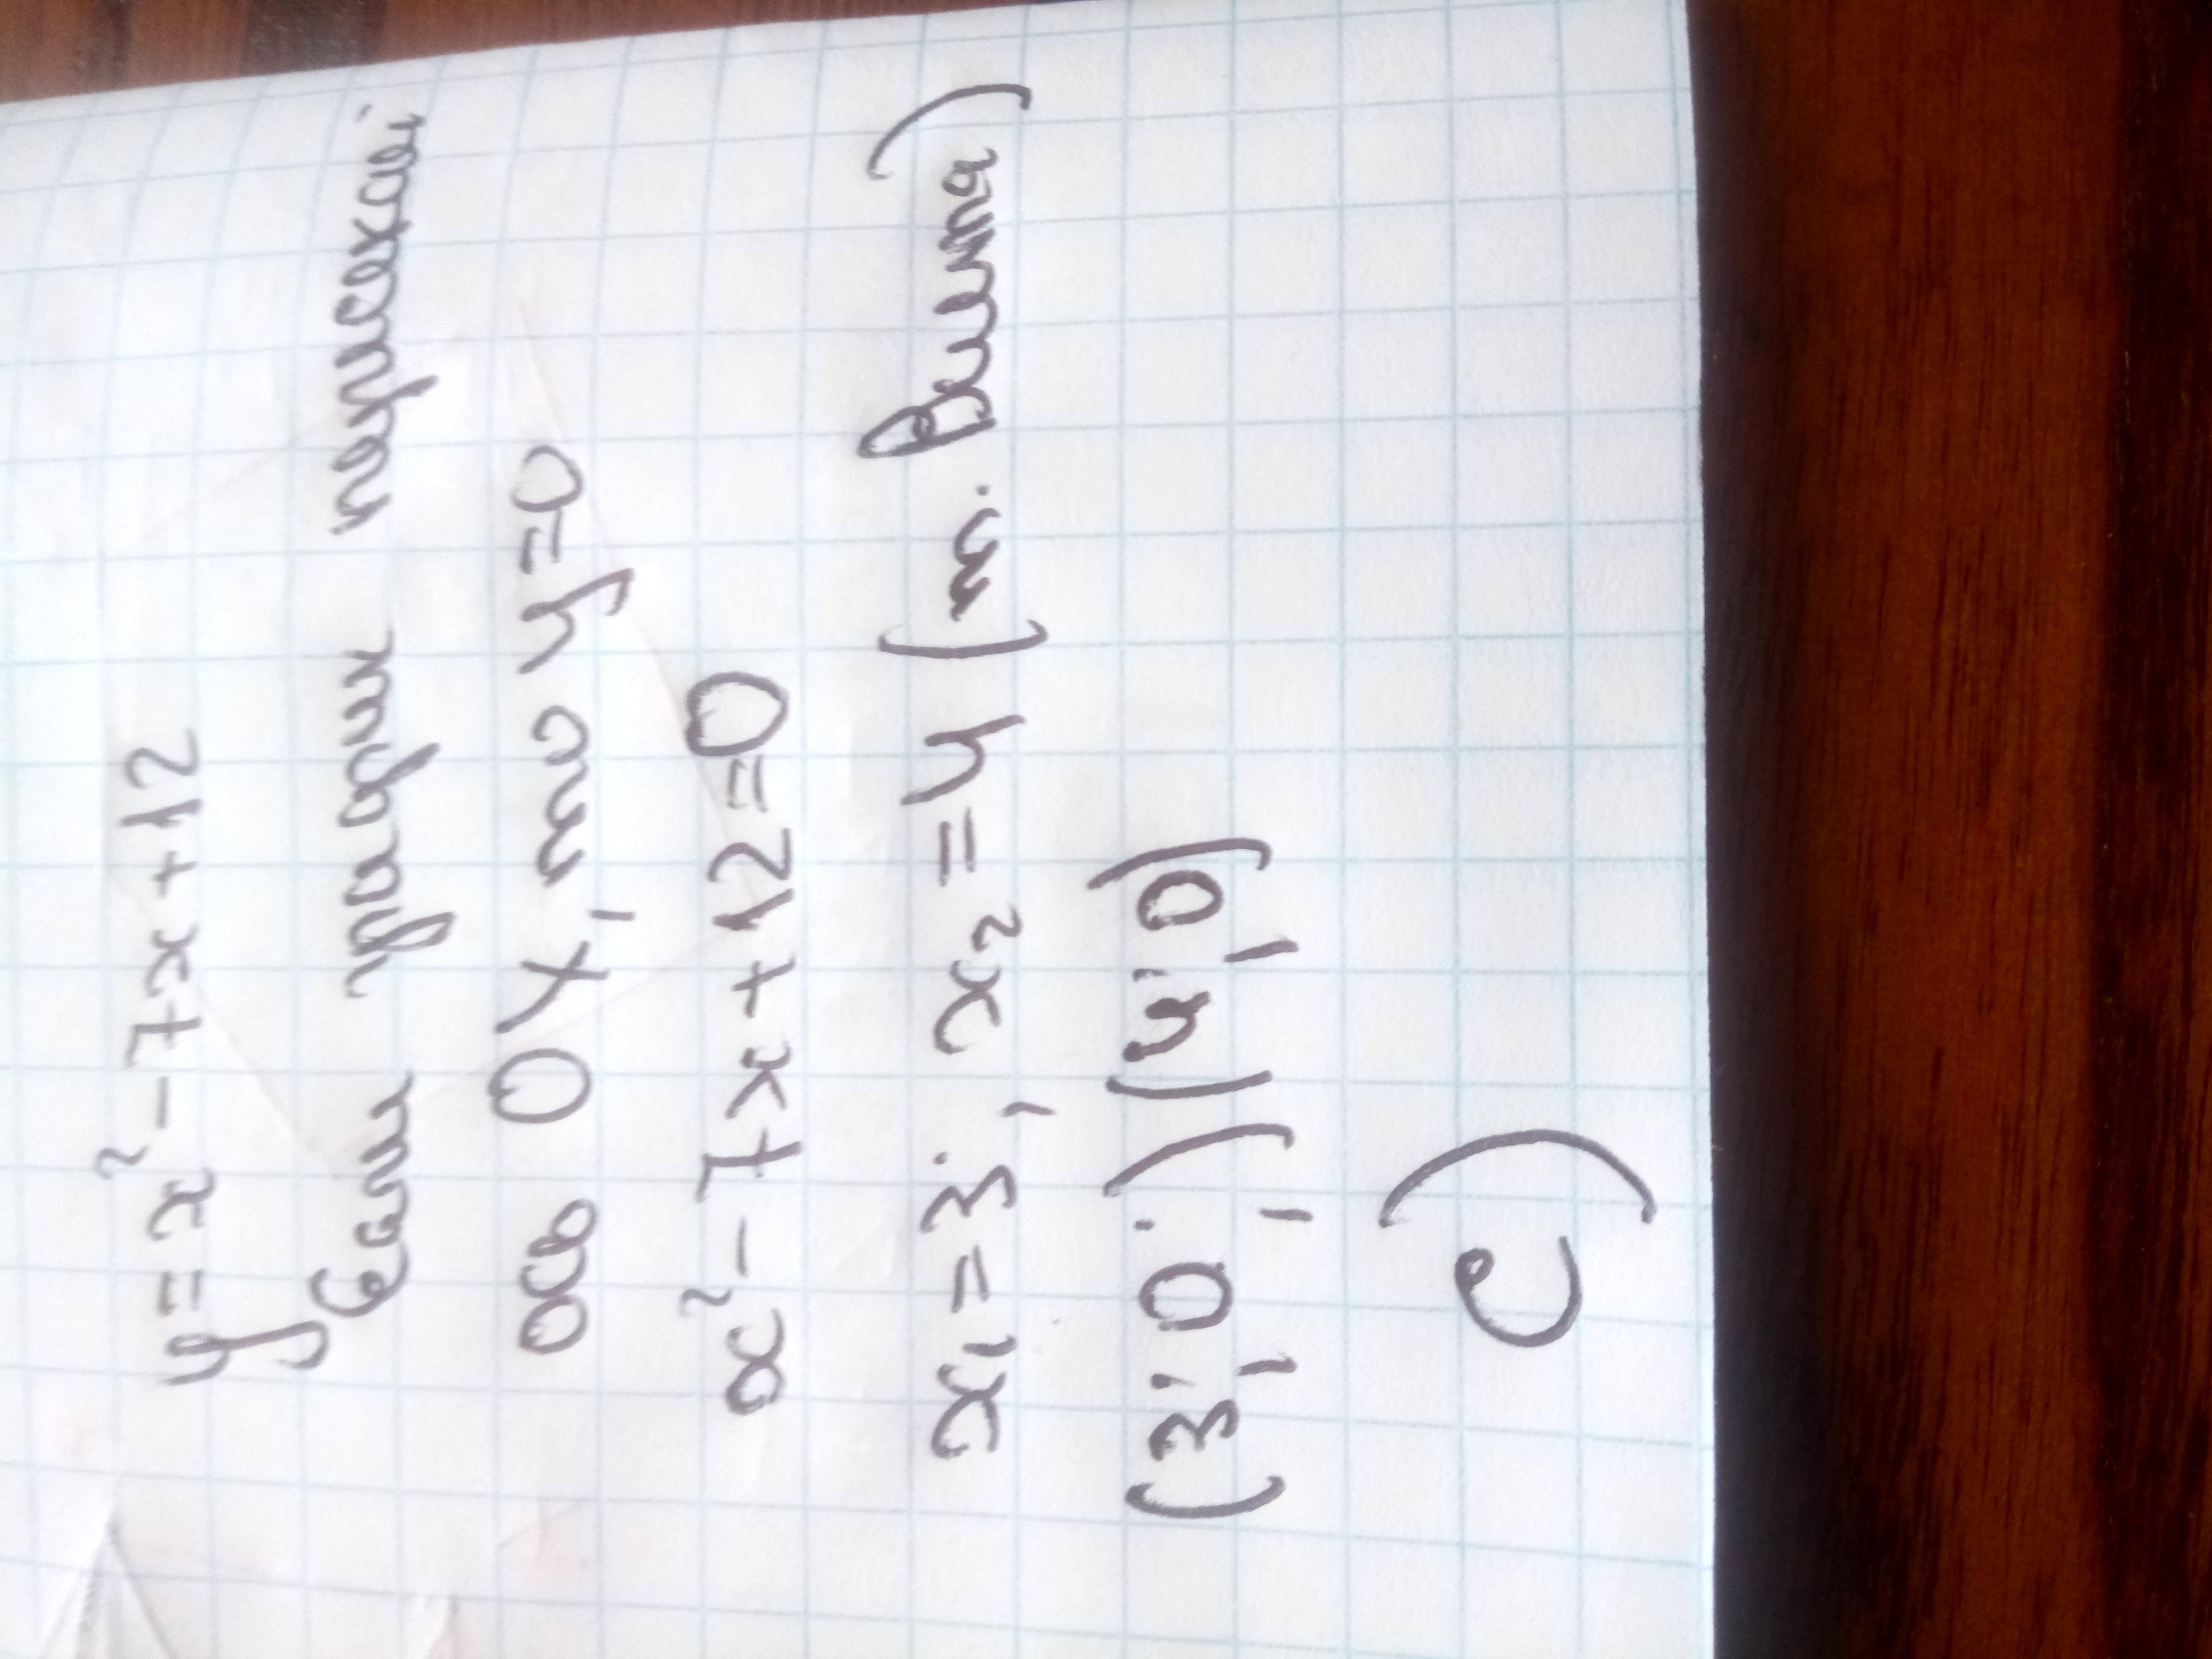 y = x² - 7x + 12
Если график пересекает
ось OX, то y = 0
x² - 7x + 12 = 0
x₁ = 3; x₂ = 4 (т. Виета)
(3; 0); (4; 0)
C)